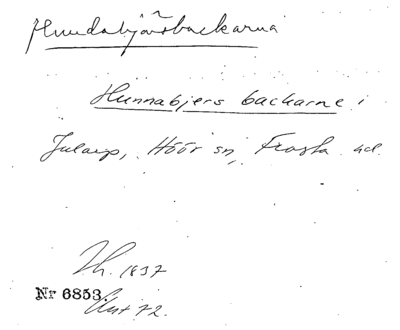 Hundabjärsbackarna
Hunnabjers backarne i
Jularp, Höör sn, Frosta hd.
Th. 1837
Nr 6853.
Ant 72.